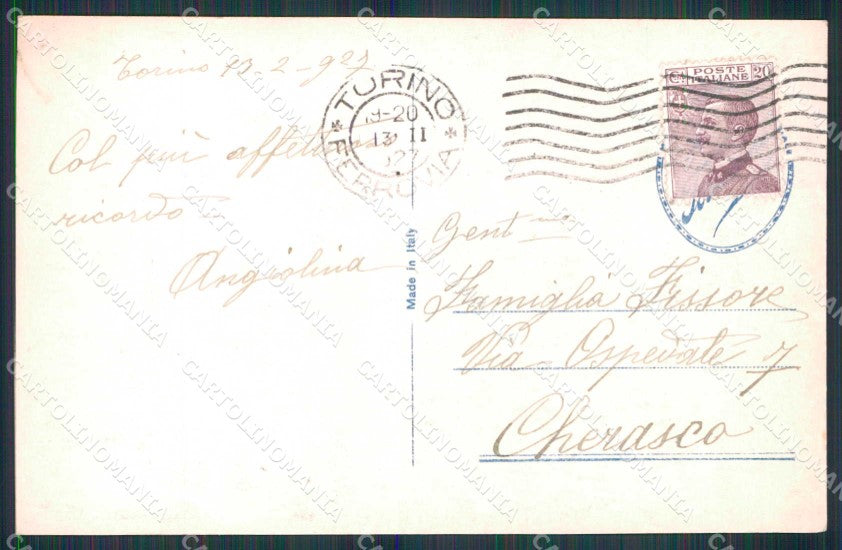 Torino 13 2-927
Col più affettuoso
ricordo
Angiolina
TURINO
19-20
13 II
927
FERROVIA
POSTE
ITALIANE
Cmi 20
Made in Italy
Gent me
Famiglia Fissore
Via Ospedale 7
Cherasco
CARTOLINOMANIA